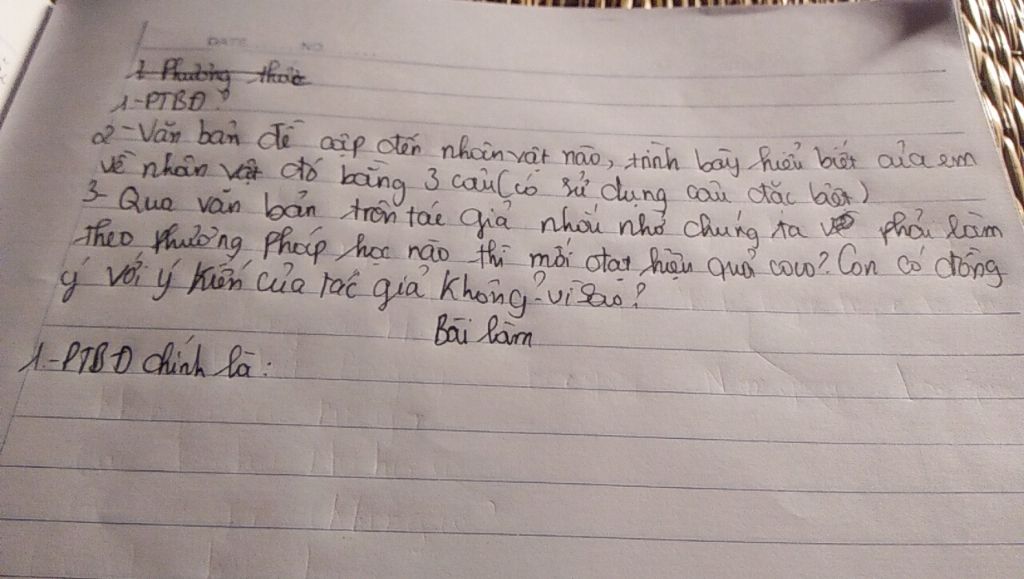 DATE NO
1 Phương thức
1.-PTBĐ?
2-Văn bản đề cập đến nhân vật nào, trình bày hiểu biết của em
về nhân vật đó bằng 3 câu(có sử dụng câu đặc biệt)
3-Qua văn bản trên tác giả nhắc nhở chúng ta phải làm
theo phương pháp học nào thì mới đạt hiệu quả cao? Con có đồng
ý với ý kiến của tác giả không? vì sao?
Bài làm
1.-PTBĐ chính là: